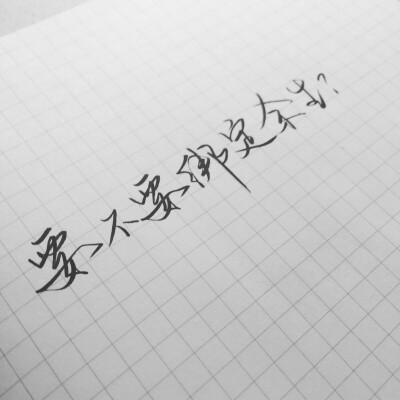 要不要绑定余生?